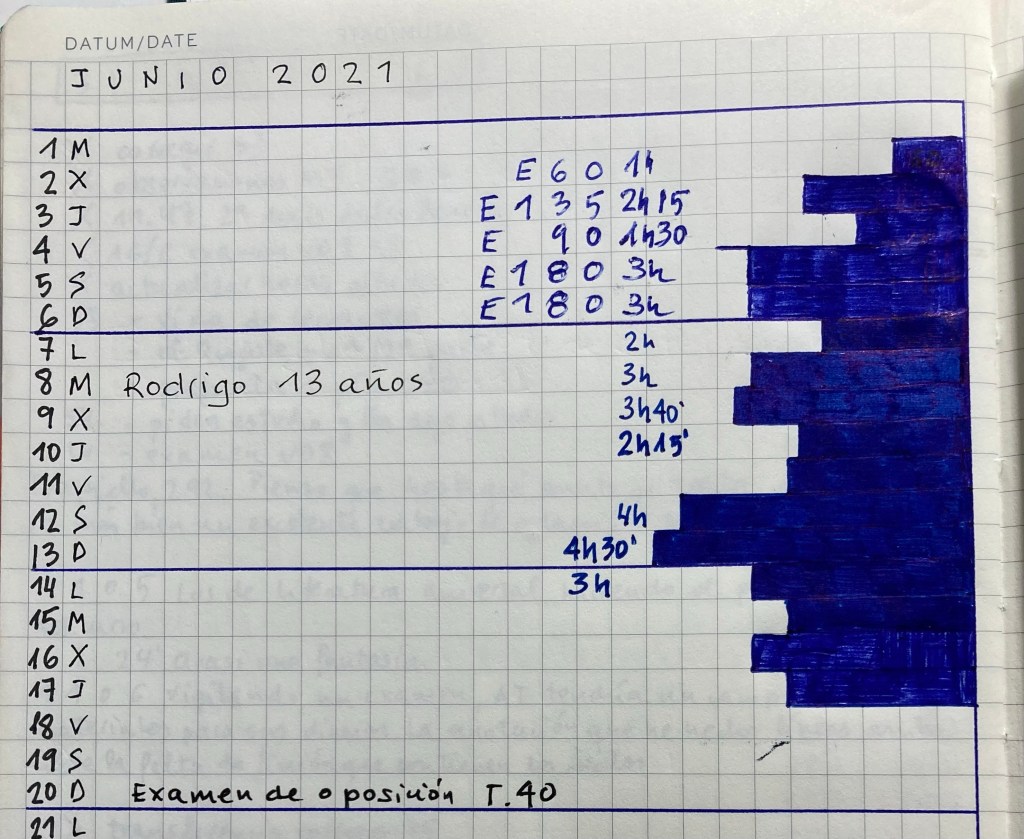 DATUM/DATE
JUNIO 2021
1 M
2 X E 60 1h
3 J E 135 2h15
4 V E 90 1h30
5 S E 180 3h
6 D E 180 3h
7 L 2h
8 M Rodrigo 13 años 3h
9 X 3h40'
10 J 2h15'
11 V
12 S 4h
13 D 4h30'
14 L 3h
15 M
16 X
17 J
18 V
19 S
20 D Examen de oposición T.40
21 L